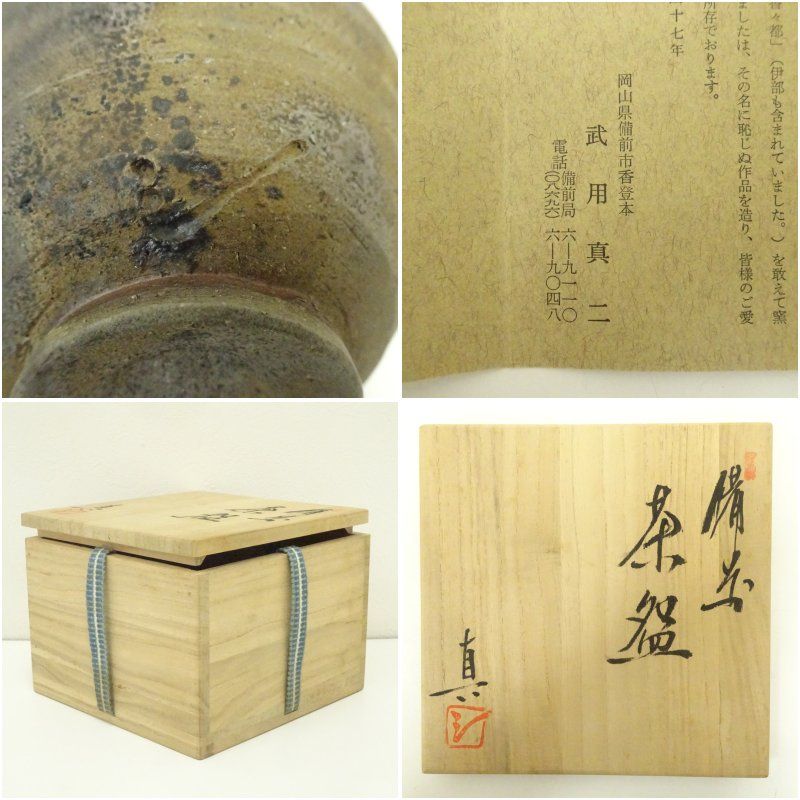 香々都」（伊部も含まれていました。）を敢えて窯
ましたは、その名に恥じぬ作品を造り、皆様のご愛
所存でおります。
十七年
岡山県備前市香登本
武用真二
電話 備前局 六―九一一〇
(〇八六九六) 六―九〇四八
備前
茶盌
真二